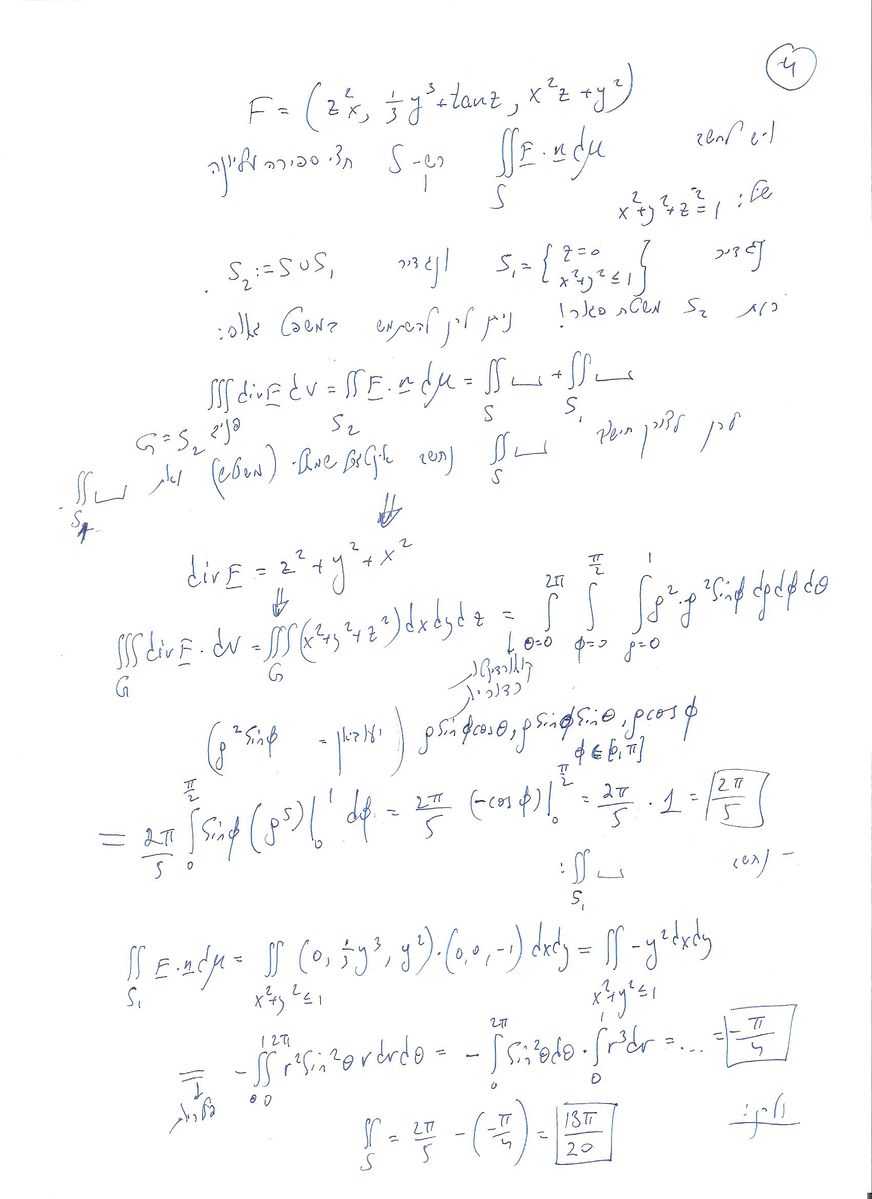 4
F = (z²x, ⅓y³+tanz, x²z+y²)
ויש לחשב ∬_S F·n dμ כש-S חצי ספירה עליונה
של: x²+y²+z²=1
נגדיר S₁ = {z=0, x²+y²≤1} ונגדיר S₂ := S∪S₁.
כעת S₂ משטח סגור! ניתן לכן להשתמש במשפט גאוס:
∭_{G=S₂ פנים} divF dV = ∬_{S₂} F·n dμ = ∬_S ⎵ + ∬_{S₁} ⎵
לכן לצורך חישוב ∬_S ⎵ נחשב אינטגרל שמאל (משולש) ואת
∬_{S₁} ⎵.
⇓
divF = z²+y²+x²
⇓
∭_G divF·dV = ∭_G (x²+y²+z²)dxdydz = ∫_{θ=0}^{2π} ∫_{φ=0}^{π/2} ∫_{ρ=0}^{1} ρ²·ρ² sinφ dρdφdθ
↓
קואורדינטות
כדוריות
(ρ²sinφ = יעקוביאן) ρsinφcosθ, ρsinφsinθ, ρcosφ
φ∈[0,π]
= 2π/5 ∫_0^{π/2} sinφ (ρ⁵)|_0^1 dφ = 2π/5 (-cosφ)|_0^{π/2} = 2π/5 · 1 = 2π/5
- נחשב ∬_{S₁} ⎵ :
∬_{S₁} F·n dμ = ∬_{x²+y²≤1} (0, ⅓y³, y²)·(0,0,-1) dxdy = ∬_{x²+y²≤1} -y²dxdy
= -∫_0^1∫_0^{2π} r²sin²θ r dr dθ = -∫_0^{2π} sin²θdθ · ∫_0^1 r³dr = ... = -π/4
↓
פולריות
ולכן: ∬_S = 2π/5 - (-π/4) = 13π/20